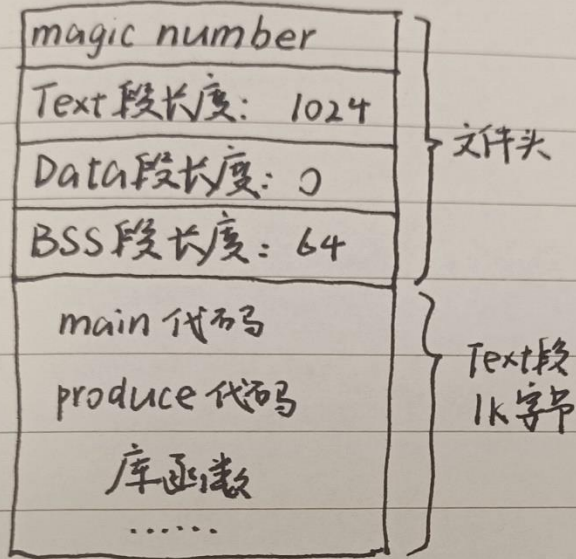 magic number
Text段长度: 1024
Data段长度: 0
BSS段长度: 64
文件头
main 代码
produce 代码
库函数
......
Text段
1K字节